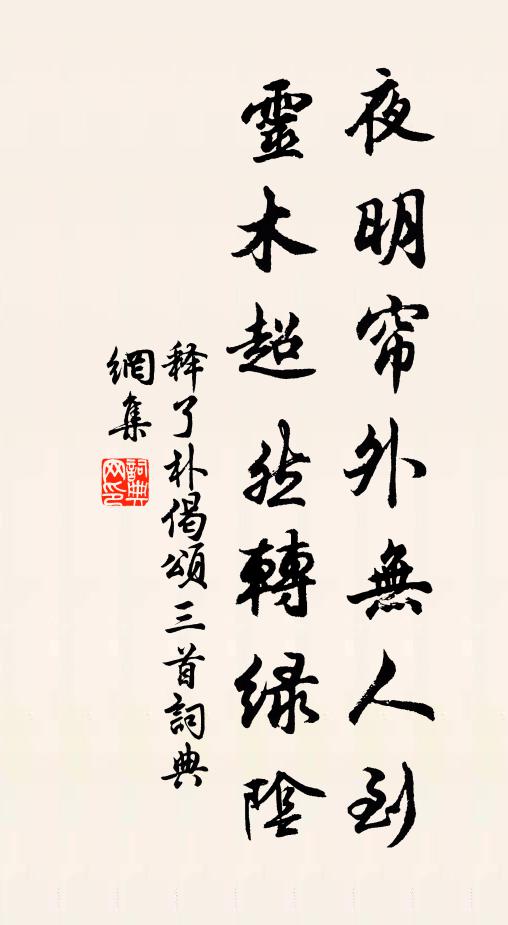 夜明帘外無人到
靈木超然轉绿陰
释了朴偈頌三首詞典
網集
詞典
网印